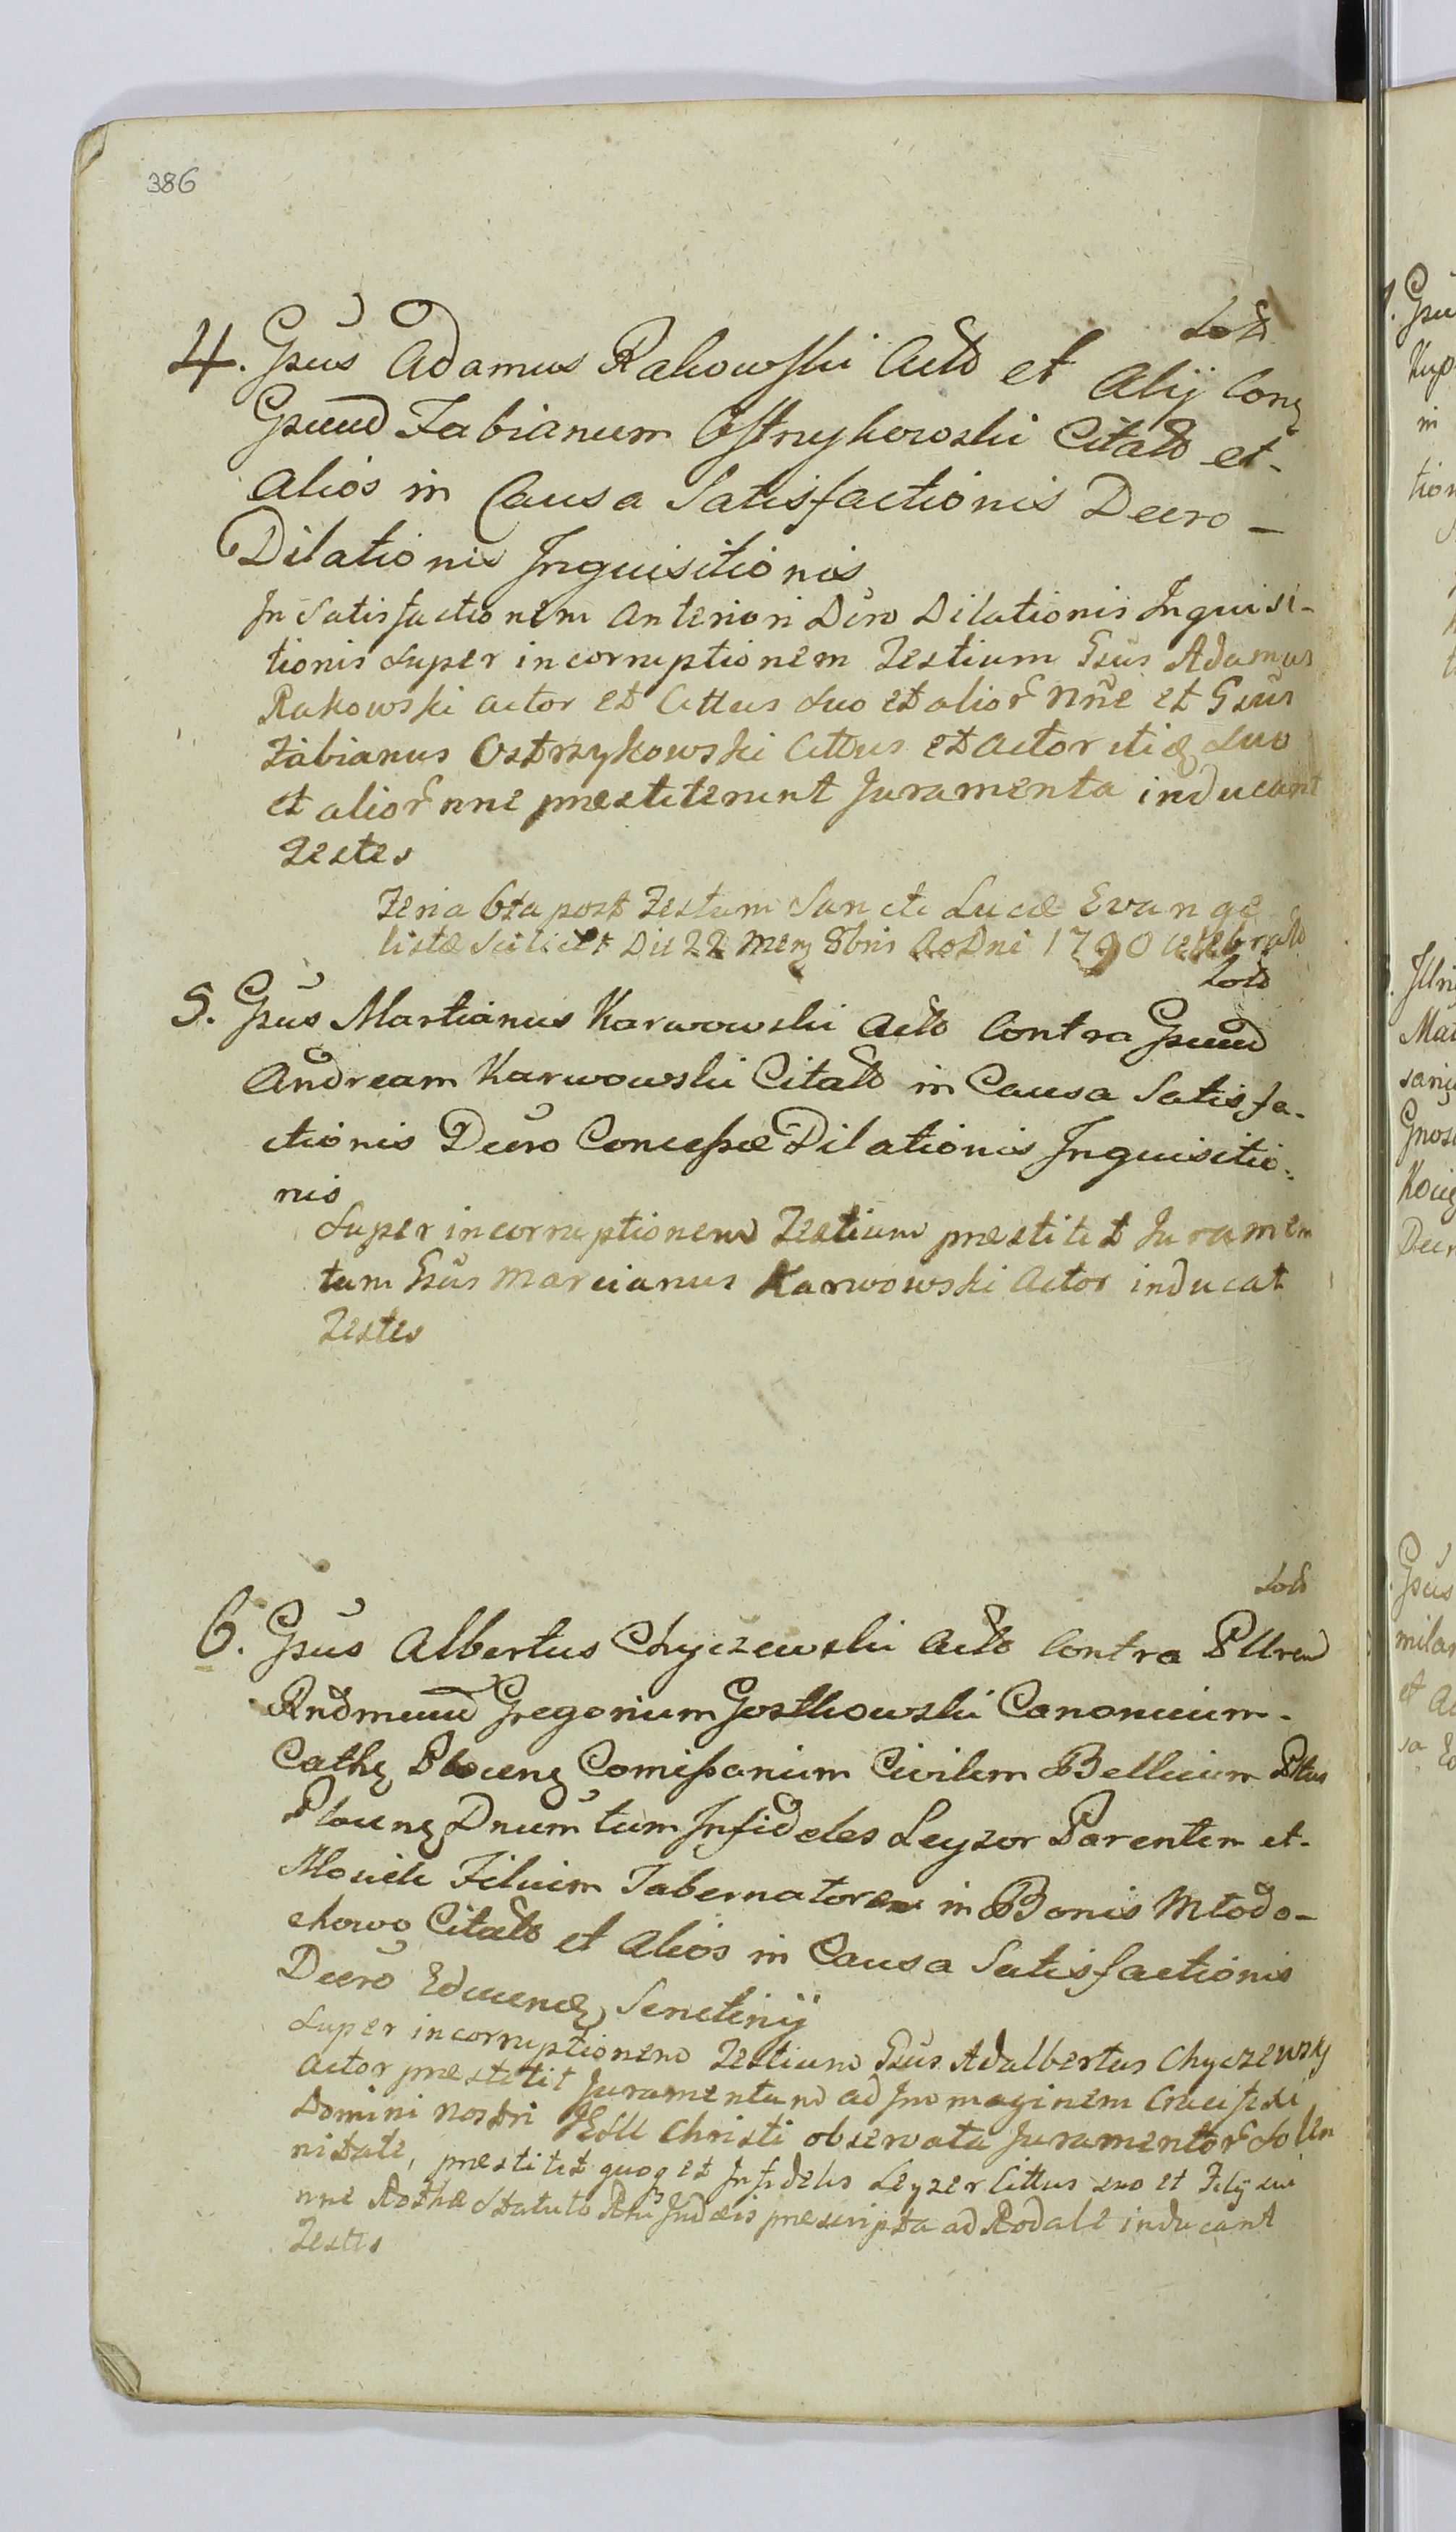 386
4. Gsus Adamus Rakowski Acto et Alij Conq
Gsuum Fabianum Ostrzykowski Citato et
Alios in Causa Satisfactionis Decro
Dilationis Inquisitionis
In Satisfactionem anteriori Decro Dilationis Inquisi-
tionis super incorruptionem Testium Gsus Adamus
Rakowski actor et Cittus suo et alior nne et Gsus
Fabianus Ostrzykowski Cittus et actor itiq suo
et alior nne praestiterunt Juramenta inducant
Testes
Feria 6ta post Festum Sancti Lucae Evange
listae Scilicet Die 22 Mens 8bris Ao Dni 1790 celebrato
5. Gsus Martianus Karwowski Acto Contra Gsuum
Andream Karwowski Citato in Causa Satisfa-
ctionis Decro Concessae Dilationis Inquisitio-
nis
super incorruptionem Testium praestitit Juramen
tum Gsus Marcianus Karwowski Actor inducat
Testes
6. Gsus Albertus Chyczewski Acto Contra Pllrem
Rndmuum Gregorium Gostkowski Canonicum
Cathq Plocenq Comissarium Civilem Bellicum Pltus
Plocenq Dnum tum Infideles Leyzor Parentem et
Mosiek Filium Tabernatores in Bonis Młodo-
chowo Citato et Alios in Causa Satisfactionis
Decro Educenq Scrutinij
super incorruptionem Testium Gsus Adalbertus Chyczewsky
actor praestitit Juramentum ad Immaginem Crucifixi
Domini Nostri JESU Christi observata Juramentor Solen
nitate, praestitit quoq et Infidelis Leyzer Cittus suo et Filij sui
nne Rotha Statuto Rni Judaeis praescripta ad Rodale inducant
Testes